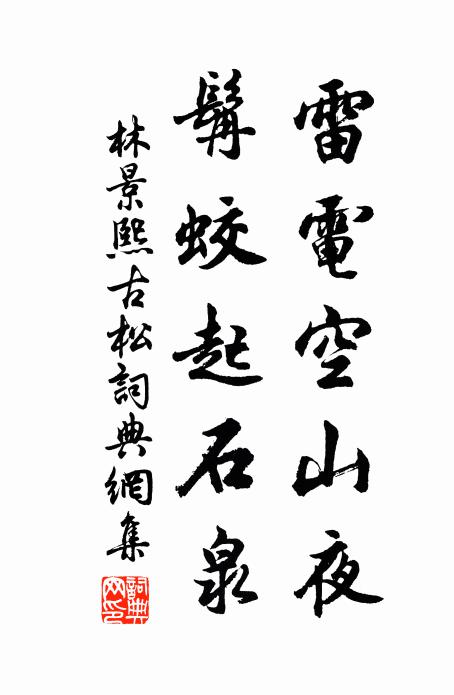 雷電空山夜
髯蛟起石泉
林景熙古松詞典網集
詞典網印